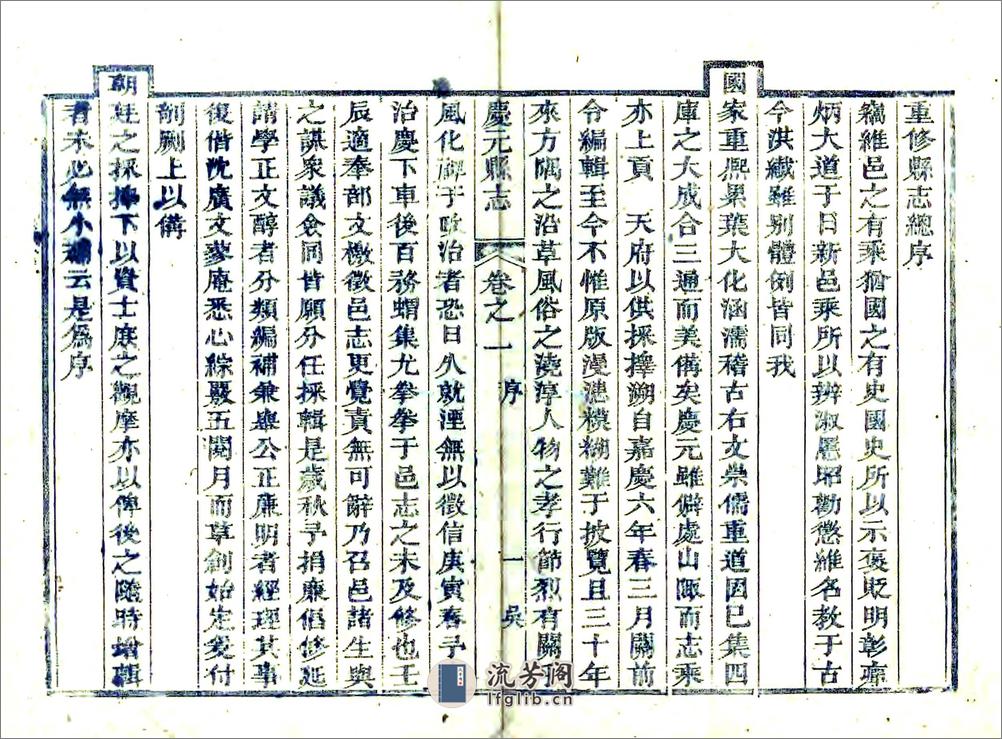 重修縣志總序
竊維邑之有乘猶國之有史國史所以示褒貶明彰癉
炳大道于日新邑乘所以辨淑慝昭勸懲維名教于古
今洪纖雖別體例皆同我
國家重熙累葉大化涵濡稽古右文崇儒重道固已集四
庫之大成合三通而美備矣慶元雖僻處山陬而志乘
亦上貢 天府以供採擇溯自嘉慶六年春三月關前
令編輯至今不惟原版漫漶模糊難于披覽且三十年
來方隅之沿革風俗之澆淳人物之孝行節烈有關
慶元縣志 卷之一 序 一 吳
風化碑于政治者恐日久就湮無以徵信庚寅春予
治慶下車後百務蝟集尤拳拳于邑志之未及修也壬
辰適奉部文檄徵邑志更覺責無可辭乃召邑諸生與
之謀衆議僉同皆願分任採輯是歲秋予捐廉倡修延
請學正文醇者分類編補兼舉公正廉明者經理其事
復偕沈廣文蓼庵悉心綜覈五閱月而草創始定爰付
剞劂上以備
朝廷之採擇下以資士庶之觀摩亦以俾後之隨時增輯
者未必無小補云是爲序
流芳阁
lfglib.cn